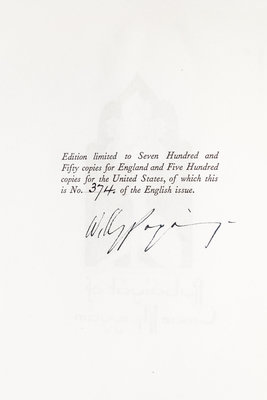 Edition limited to Seven Hundred and
Fifty copies for England and Five Hundred
copies for the United States, of which this
is No. 374. of the English issue.
Willy Pogány